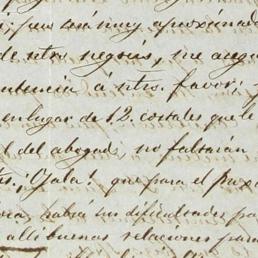 pues será muy aproximada
de ntro. negocio, me asegu
ntencia á ntro. favor;
en lugar de 12. costales que le
l del abogado, no faltarán
¡Ojalá! que para el prox
habrá sus dificultades pa
allí buenas relaciones para